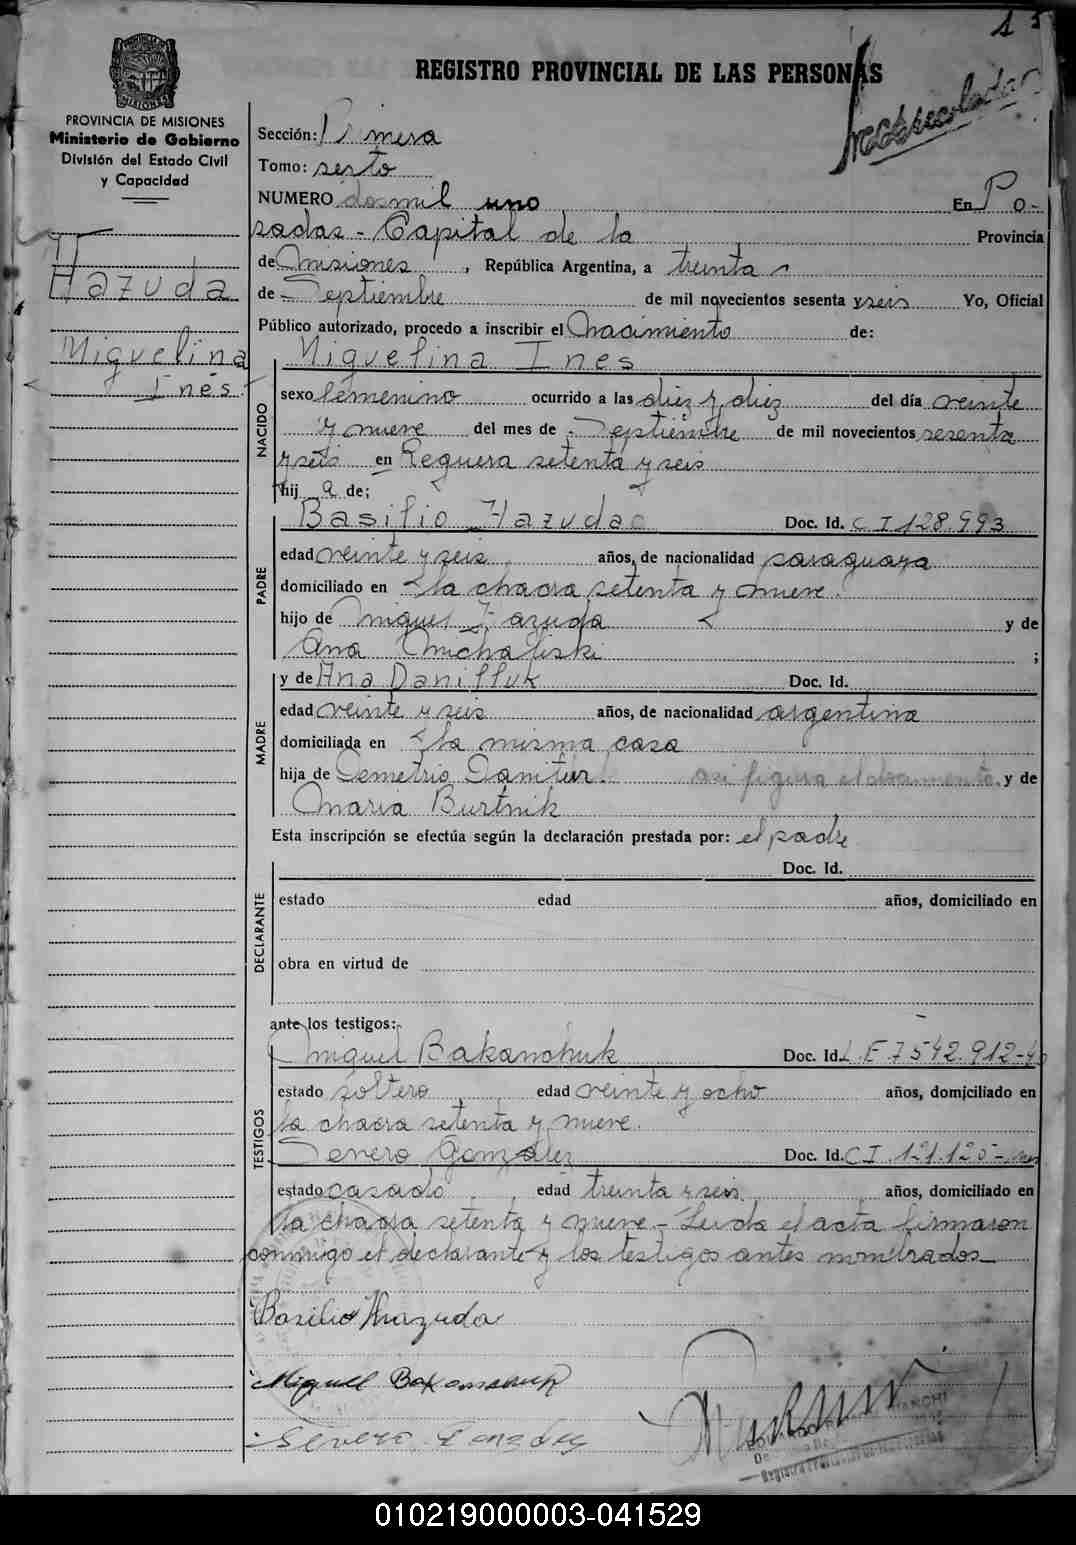 15
REGISTRO PROVINCIAL DE LAS PERSONAS
PROVINCIA DE MISIONES
Ministerio de Gobierno
División del Estado Civil
y Capacidad
Hazuda
Miguelina
Inés
Sección: Primera
Tomo: sexto
NUMERO dosmil uno En Po-
sadas - Capital de la Provincia
de Misiones, República Argentina, a treinta
de Septiembre de mil novecientos sesenta y seis Yo, Oficial
Público autorizado, procedo a inscribir el nacimiento de:
NACIDO
Miguelina Ines
sexo femenino ocurrido a las diez y diez del día veinte
y nueve del mes de Septiembre de mil novecientos sesenta
y seis en Reguera setenta y seis
hij a de;
PADRE
Basilio Hazuda Doc. Id. C I 128.993
edad veinte y seis años, de nacionalidad paraguaya
domiciliado en la chacra setenta y nueve.
hijo de Miguel Hazuda y de
Ana Michaliski ;
MADRE
y de Ana Danilluk Doc. Id.
edad veinte y seis años, de nacionalidad argentina
domiciliada en la misma casa
hija de Demetrio asi figura el documento. y de
Maria Burtnik
Esta inscripción se efectúa según la declaración prestada por: el padre
DECLARANTE
Doc. Id.
estado edad años, domiciliado en
obra en virtud de
ante los testigos:
TESTIGOS
Miguel Bakanchuk Doc. Id. L.E 7542.912-
estado soltero edad veinte y ocho años, domiciliado en
la chacra setenta y nueve.
Severo Gonzalez Doc. Id. C I. 121.120-
estado casado edad treinta y seis años, domiciliado en
la chacra setenta y nueve - Leida el acta firmaron
conmigo el declarante y los testigos antes nombrados
Basilio Hazuda
Miguel Bakanchuk
Severo Gonzalez
010219000003-041529